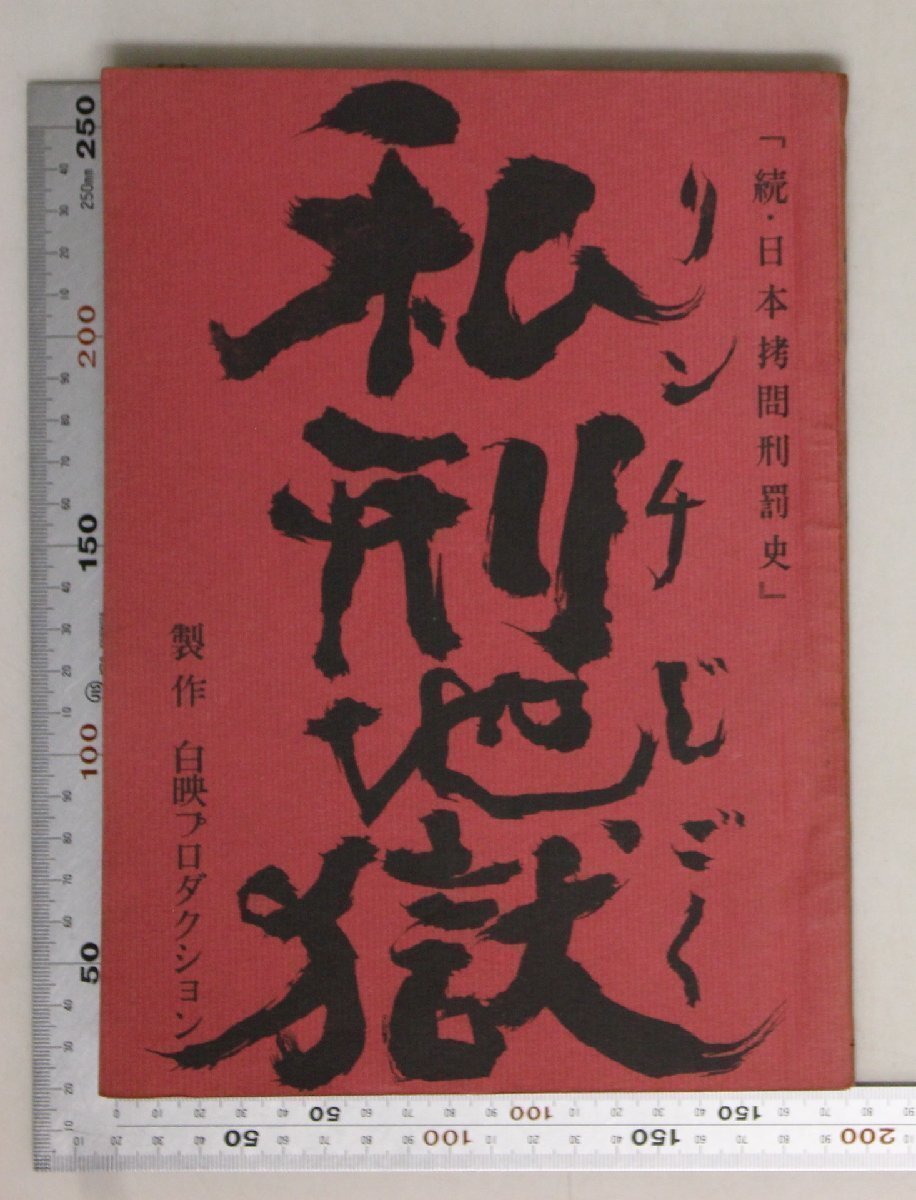 「続・日本拷問刑罰史』
リンチじごく
私刑地獄
製作 白映プロダクション
250
250mm
200
150
100
50
50 100 150
50 100 150 200